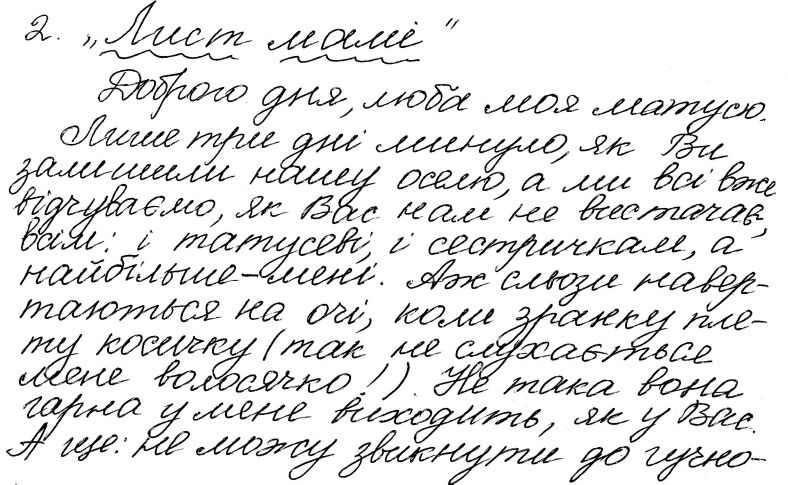 2. „Лист мамі"
Доброго дня, люба моя матусю.
Лише три дні минуло, як Ви
залишили нашу оселю, а ми всі вже
відчуваємо, як Вас нам не вистачає,
всім: і татусеві, і сестричкам, а
найбільше – мені. Аж сльози навер-
таються на очі, коли зранку пле-
ту косичку (так не слухається
мене волосячко!). Не така вона
гарна у мене виходить, як у Вас.
А ще: не можу звикнути до гучно-